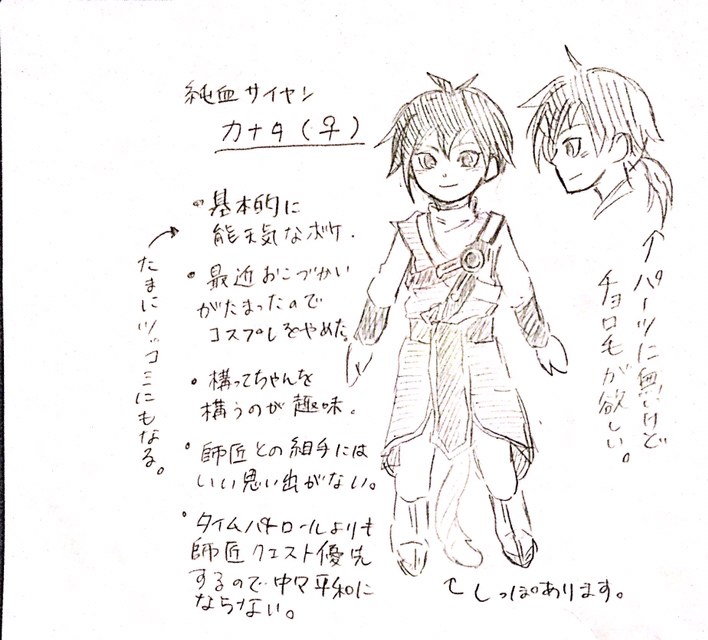 純血サイヤン
カナタ(♀)
・基本的に
能天気なボケ.
たまにツッコミにもなる。
・最近おこづかい
がたまったので
コスプレをやめた。
・構ってちゃんを
構うのが趣味.
・師匠との組手には
いい思い出がない。
・タイムパトロールよりも
師匠クエスト優先
するので中々平和に
ならない。
パーツに無いけど
チョロ毛が欲しい。
しっぽあります。